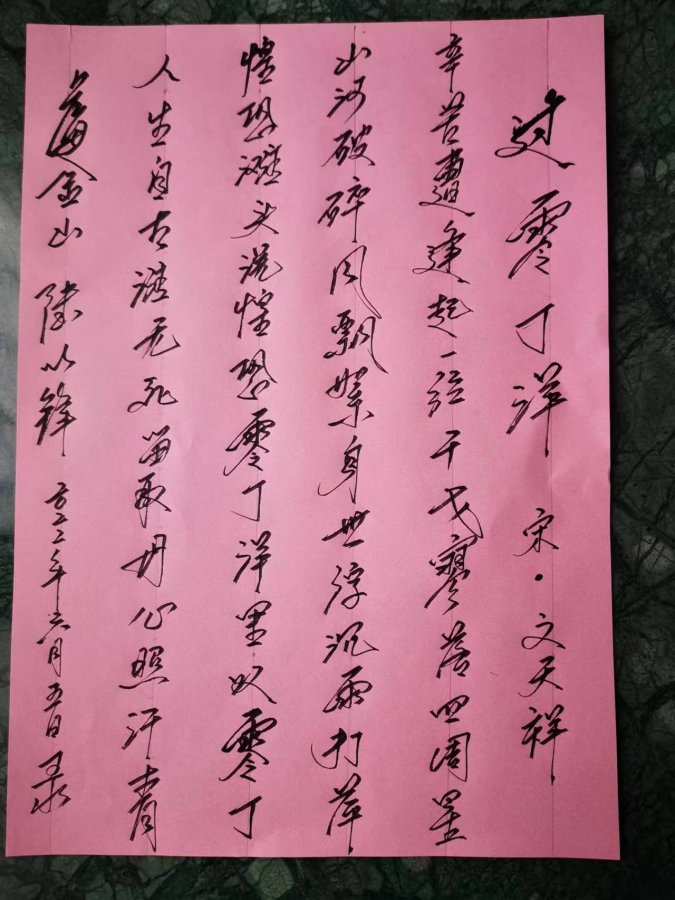 过零丁洋 宋·文天祥
辛苦遭逢起一经干戈寥落四周星
山河破碎风飘絮身世浮沉雨打萍
惶恐滩头说惶恐零丁洋里叹零丁
人生自古谁无死留取丹心照汗青
金山 陆以锋 二〇二二年六月五日 录